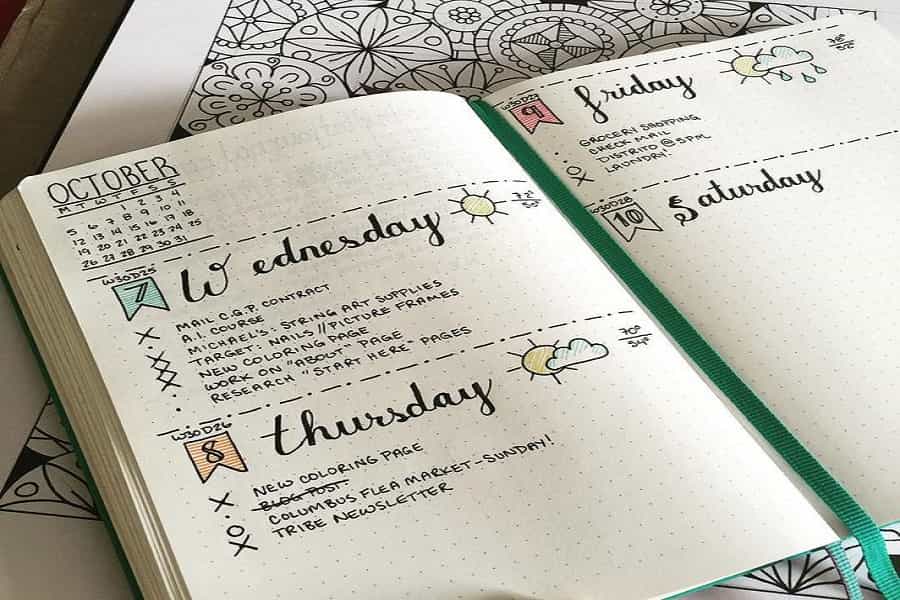 OCTOBER
M T W T F S S
1 2 3 4
5 6 7 8 9 10 11
12 13 14 15 16 17 18
19 20 21 22 23 24 25
26 27 28 29 30 31
W30D25
7 Wednesday
MAIL C.G.P. CONTRACT
A.I. COURSE
MICHAEL'S: STRING ART SUPPLIES
TARGET: NAILS // PICTURE FRAMES
NEW COLORING PAGE
WORK ON "ABOUT" PAGE
RESEARCH "START HERE" PAGES
W30D26
8 thursday 70° 54°
NEW COLORING PAGE
BLOG POST:
COLUMBUS FLEA MARKET-SUNDAY!
TRIBE NEWSLETTER
W30D27
9 friday
GROCERY SHOPPING
CHECK MAIL
DISTRITO @ 5PM
LAUNDRY!
W30D28
10 Saturday